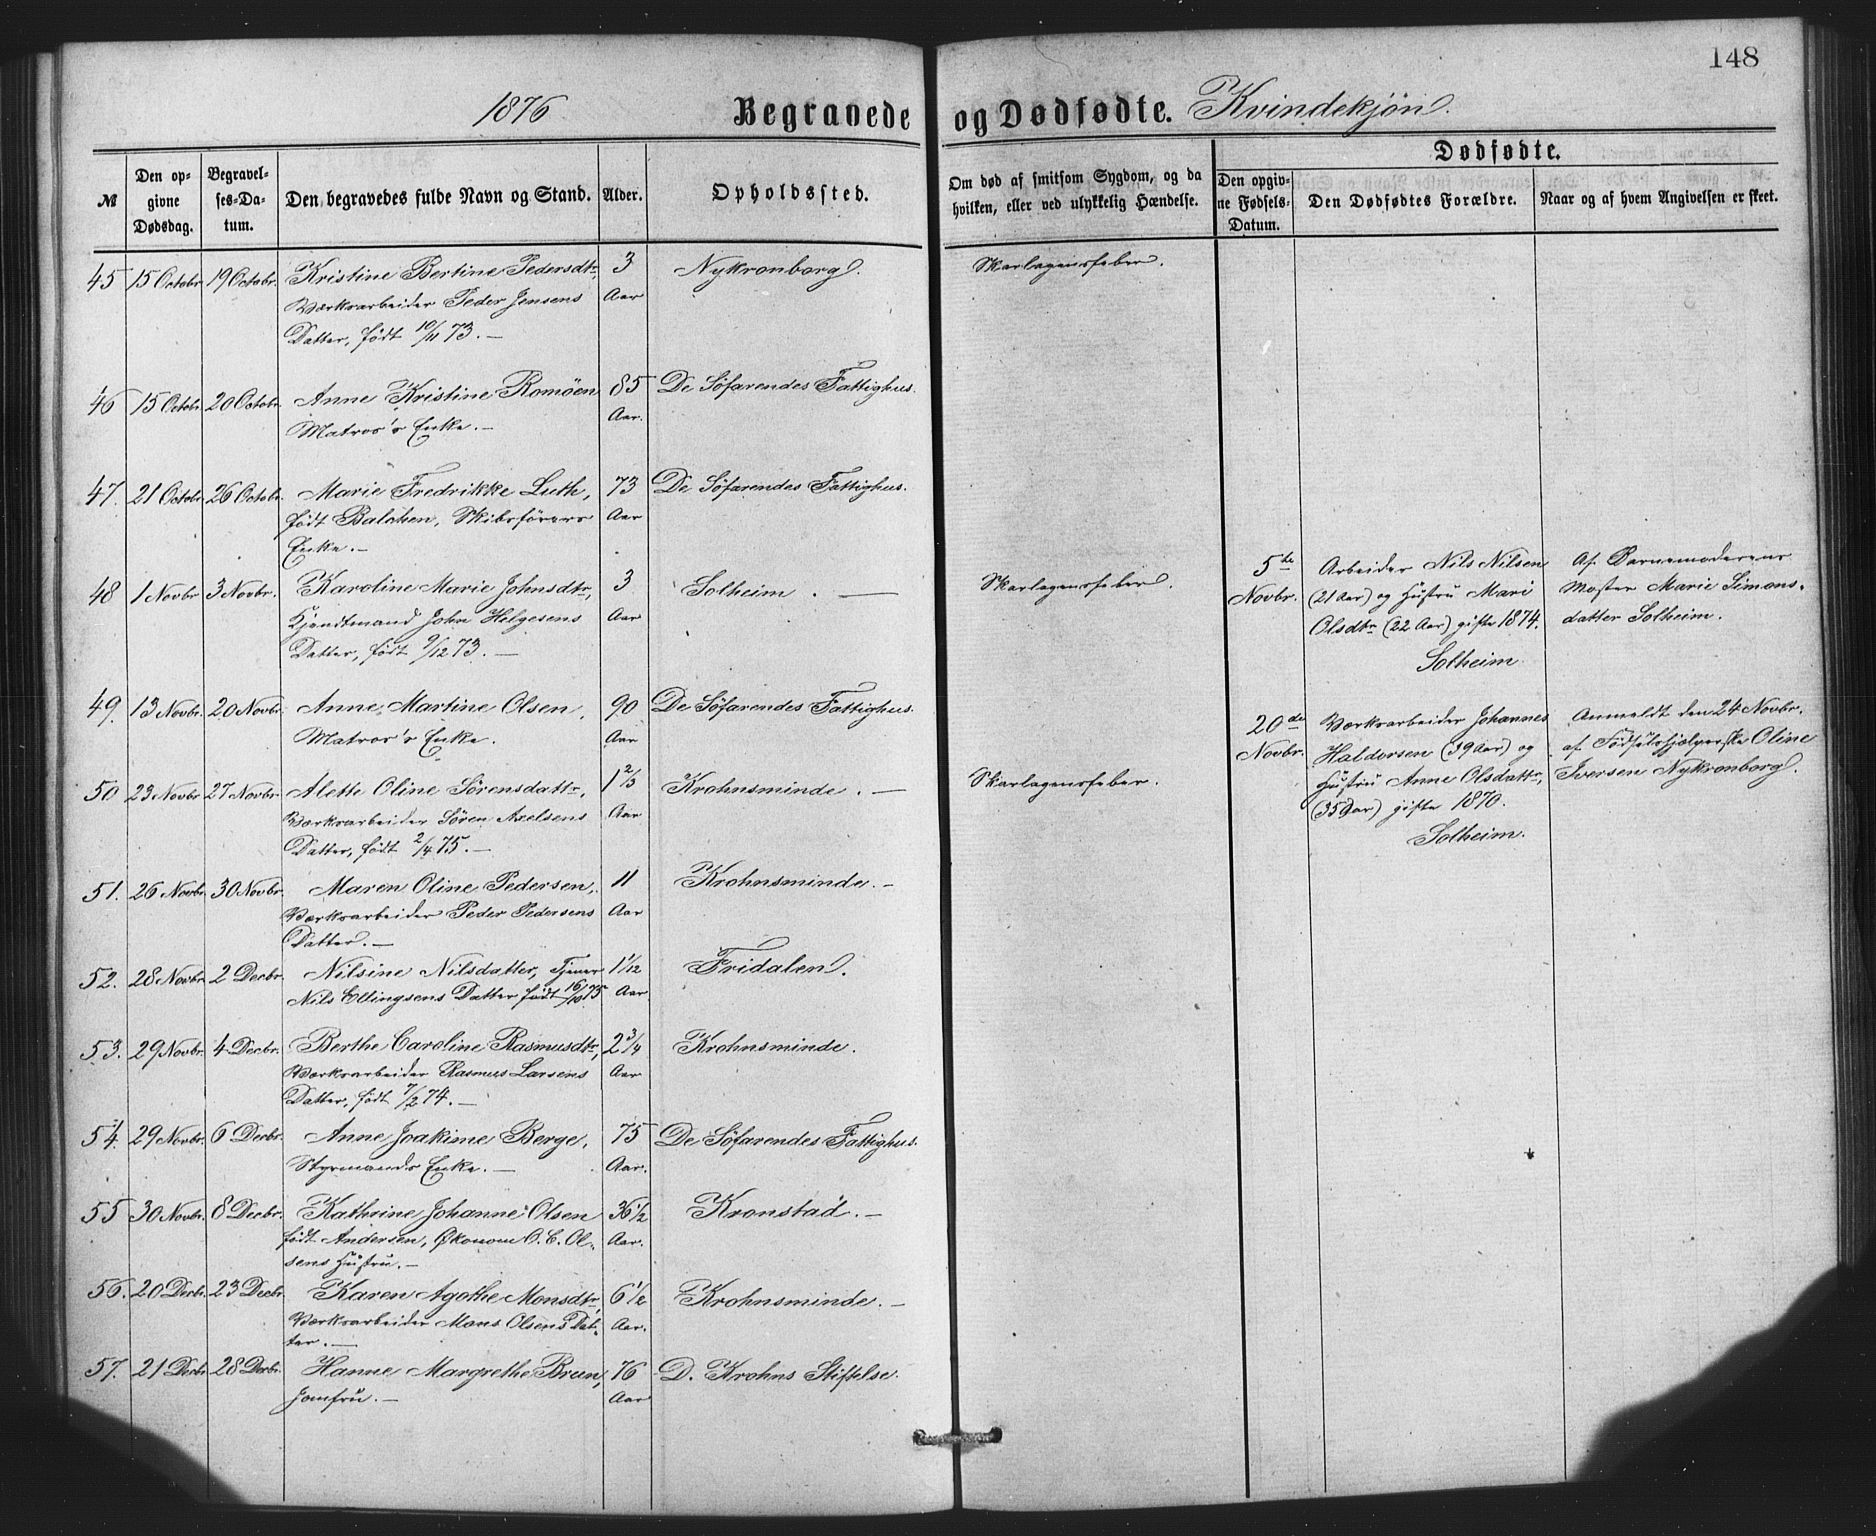 148
1876 Begravede og Dødfødte. Kvindekjön.
№
Den opgivne Dødsdag.
Begravelses-Datum.
Den begravedes fulde Navn og Stand.
Alder.
Opholdssted.
Om død af smitsom Sygdom, og da hvilken, eller ved ulykkelig Hændelse.
Dødfødte.
Den opgivne Fødsels-Datum.
Den Dødfødtes Forældre.
Naar og af hvem Angivelsen er skeet.
45 15 Octobr 19 Octobr. Kristine Bertine Pedersdtr, 3 Aar Nykronborg. Skarlagensfeber.
Værksarbeider Peder Jensens
Datter, født 10/11 73. —
46 15 Octobr 20 Octobr. Anne Kristine Romöen 85 Aar. De Söfarendes Fattighus.
Matros's Enke. —
47. 21 Octobr 26 Octobr. Marie Fredrikke Luth, 73 Aar De Söfarendes Fattighus.
født Balchen, Skibsförers
Enke. —
48 1 Novbr 3 Novbr. Karoline Marie Johnsdtr, 3 Aar Solheim. — Skarlagensfeber.
Kjendtmand John Helgesens
Datter, født 9/12 73. —
49. 13 Novbr. 20 Novbr. Anne Martine Olsen, 90 Aar De Söfarendes Fattighus.
Matros's Enke.
50 23 Novbr 27 Novbr. Alette Oline Sörensdattr, 1 2/3 Aar Krohnsminde. — Skarlagensfeber.
Værksarbeider Sören Axelsens
Datter, født 2/4 75. —
51. 26 Novbr. 30 Novbr. Maren Oline Pedersen, 11 Aar Krohnsminde. —
Værksarbeider Peder Pedersens
Datter. —
52. 28 Novbr. 2 Decbr. Nilsine Nilsdatter, Tjener 1 1/12 Aar Fridalen.
Nils Ellingsens Datter født 16/10 75
53. 29 Novbr. 4 Decbr. Berthe Caroline Rasmusdtr, 2 3/4 Aar Krohnsminde.
Værksarbeider Rasmus Larsens
Datter, født 7/2 74. —
54. 29 Novbr. 6 Decbr. Anne Joakime Berge, 75 Aar. De Söfarendes Fattighus.
Styrmands Enke. —
55 30 Novbr. 8 Decbr. Kathrine Johanne Olsen 36 1/2 Aar. Kronstad. —
født Andersen, Økonom O. C. Ol-
sens Hustru. —
56. 20 Decbr. 23 Decbr. Karen Agathe Monsdtr, 6 1/2 Aar. Krohnsminde. —
Værksarbeider Mons Olsens Dat-
ter. —
57. 21 Decbr. 28 Decbr. Hanne Margrethe Brun, 76 Aar D. Krohns Stiftelse.
Jomfru. —
5te Novbr. Arbeider Nils Nilsen
(21 Aar) og Hustru Mari
Olsdtr (22 Aar) gifte 1874.
Solheim.
Af Barnemoderens
Moster Marie Simons-
datter Solheim.
20de Novbr. Værksarbeider Johannes
Haldorsen (39 Aar) og
Hustru Anne Olsdattr,
(35 Aar) gifte 1870.
Solheim.
Anmeldt den 24 Novbr.
af Födselshjælperske Oline
Iversen Nykronborg.